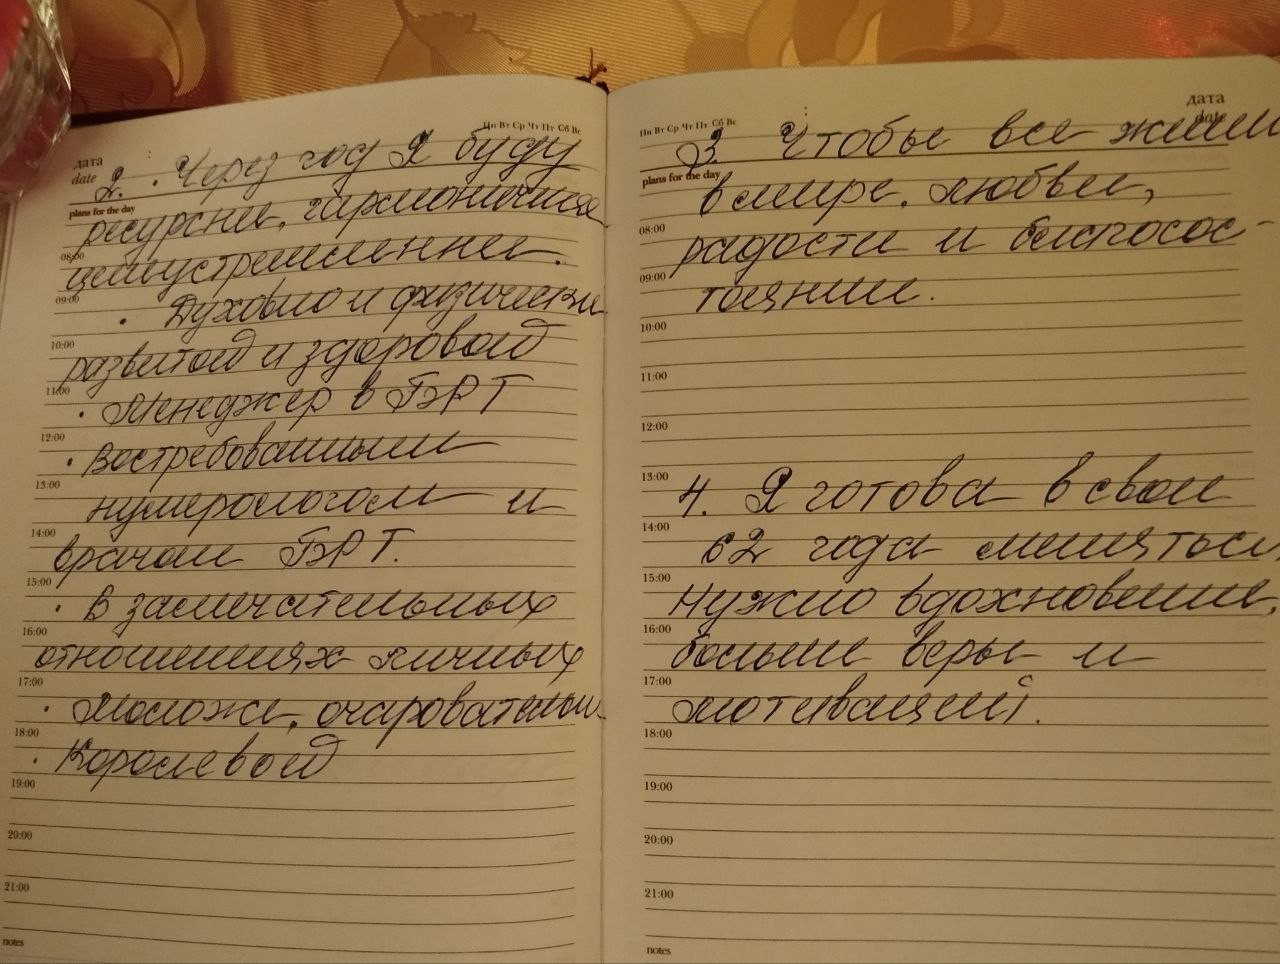 Пн Вт Ср Чт Пт Сб Вс
дата
date
plans for the day
2. · Через год Я буду
ресурсна, гармонична
08:00
целиустремленна.
09:00
· Духовно и физически
10:00
развитой и здоровой
11:00
· Менеджер в БЭРТ
12:00
· Востребованным
13:00
нумерологом и
14:00
врачом БЭРТ.
15:00
· В замечательных
16:00
отношениях личных
17:00
· Моложе, очаровательн
18:00
· Королевой
19:00
20:00
21:00
notes
Пн Вт Ср Чт Пт Сб Вс
дата
date
plans for the day
3. Чтобы все жили
в мире, любви,
08:00
радости и благосос-
09:00
тоянии.
10:00
11:00
12:00
13:00
4. Я готова в свои
14:00
62 года меняться
15:00
Нужно вдохновение,
16:00
больше веры и
17:00
мотиваций.
18:00
19:00
20:00
21:00
notes